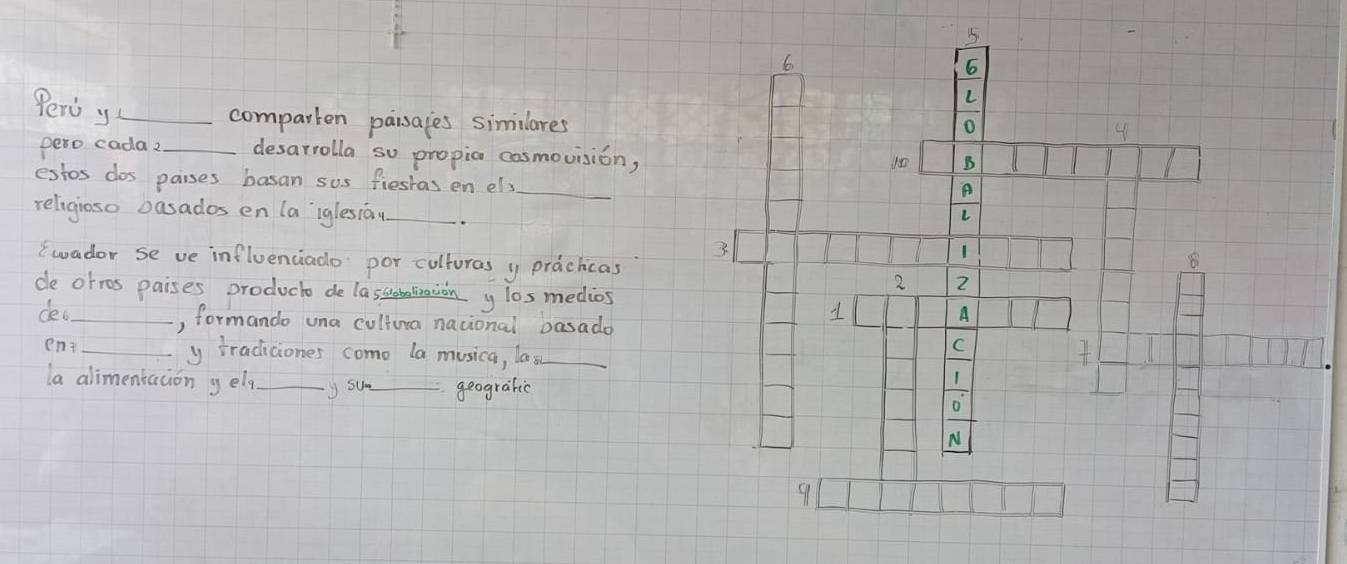 Perú y 1______ comparten paisajes similares
pero cada 2______ desarrolla su propia cosmovisión,
estos dos paises basan sus fiestas en el 3______
religioso basados en la iglesia y 4______.
Ecuador se ve influenciado por culturas y prácticas
de otros paises producto de la 5 Globalización y los medios
de 6______, formando una cultura nacional basado
en 7______ y tradiciones como la musica, las 8______
la alimentación y el 9______ y su 10______ geográfic
5
6
G
L
O
4
10
B
A
L
3
I
8
2
Z
1
A
C
7
I
O
N
9